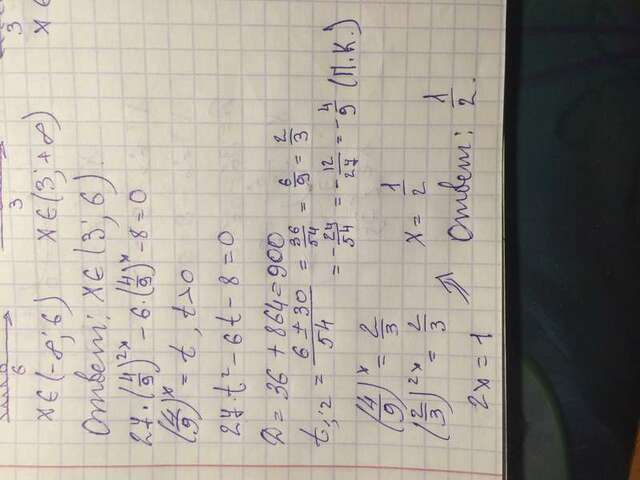 6 3 3
x∈(-∞; 6) x∈(3; +∞) x∈
Ответ: x∈(3; 6).
27·(4/9)^2x - 6·(4/9)^x - 8 = 0
(4/9)^x = t, t>0
27t² - 6t - 8 = 0
D = 36 + 864 = 900
t₁,₂ = (6 ± 30)/54 = 36/54 = 6/9 = 2/3
= -24/54 = -12/27 = -4/9 (П.К.)
(4/9)^x = 2/3
(2/3)^2x = 2/3
2x = 1 ⇒ x = 1/2
Ответ: 1/2.